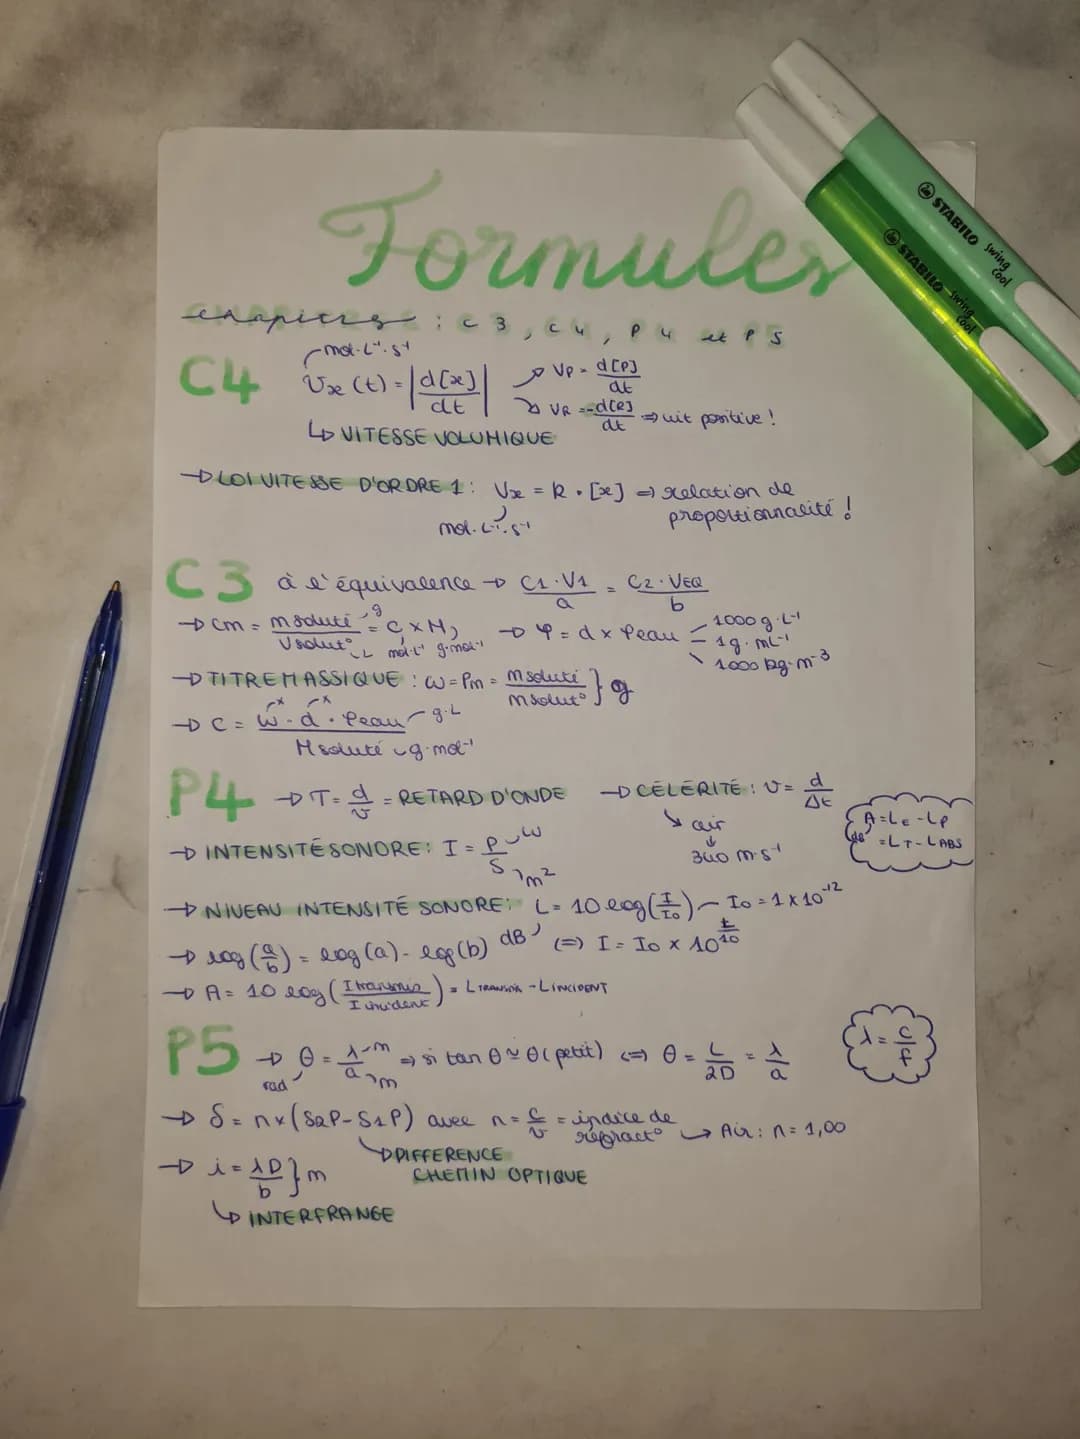 Formules
chapitres : C3, C4, P4 et P5
mol.L⁻¹.s⁻¹
C4 Vx (t) = |d[x]/dt| Vp = d[P]/dt
VR = -d[R]/dt ⇒ uit positive !
↳ VITESSE VOLUMIQUE
→ LOI VITESSE D'ORDRE 1 : Vx = k . [x] ⇒ relation de
mol.L⁻¹.s⁻¹ proportionnalité !
C3 à l'équivalence → C1.V1/a = C2.VEQ/b
→ Cm = msoluté/Vsolut° = C x M, → ρ = d x ρeau 1000 g.L⁻¹
g L mol.L⁻¹ g.mol⁻¹ 1g.mL⁻¹
1000 kg.m⁻³
→ TITRE MASSIQUE : ω = Pm = msoluté/msolut° } g
→ C = ω.d.ρeau/Msoluté g.L
g.mol⁻¹
P4 → τ = d/v = RETARD D'ONDE → CÉLÉRITÉ : v = d/Δt
air
340 m.s⁻¹
A = LE - LP
dB = LT - LABS
→ INTENSITÉ SONORE : I = P/S W
m²
→ NIVEAU INTENSITÉ SONORE : L = 10 log(I/I0) – I0 = 1 x 10⁻¹²
→ log(a/b) = log(a) - log(b) dB (=) I = I0 x 10^(L/10)
→ A = 10 log(Itransmis/Iincident) = LTRANSMIS - LINCIDENT
P5 → θ = λ/a ⇒ si tan θ ≃ θ (petit) <=> θ = L/2D = λ/a
rad m m
λ = c/f
→ δ = n x (S2P - S1P) avec n = c/v = indice de
réfract° → Air : n = 1,00
↳ DIFFERENCE
CHEMIN OPTIQUE
→ i = λD/b } m
↳ INTERFRANGE
STABILO swing cool
STABILO swing cool